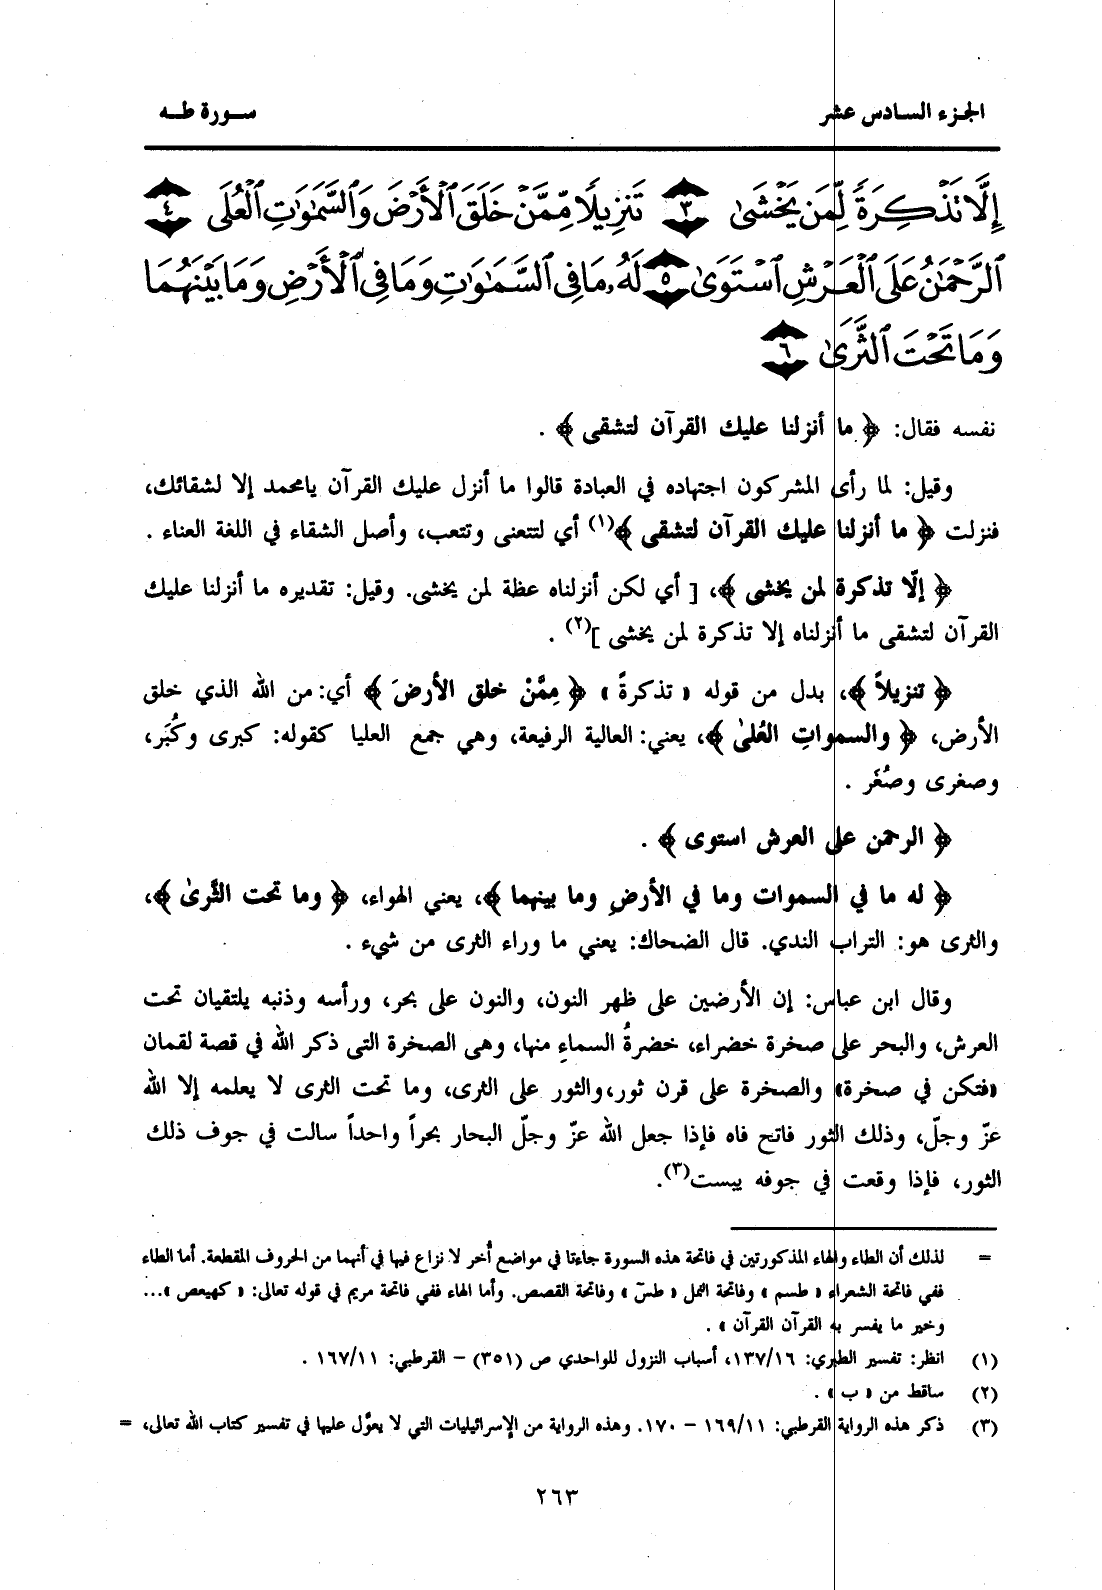 الجزء السادس عشر
سورة طه
إِلَّا تَذْكِرَةً لِّمَن يَخْشَىٰ ٣ تَنزِيلًا مِّمَّنْ خَلَقَ ٱلْأَرْضَ وَٱلسَّمَٰوَٰتِ ٱلْعُلَى ٤
ٱلرَّحْمَٰنُ عَلَى ٱلْعَرْشِ ٱسْتَوَىٰ ٥ لَهُۥ مَا فِى ٱلسَّمَٰوَٰتِ وَمَا فِى ٱلْأَرْضِ وَمَا بَيْنَهُمَا
وَمَا تَحْتَ ٱلثَّرَىٰ ٦
نفسه فقال: ﴿ ما أنزلنا عليك القرآن لتشقى ﴾ .
وقيل: لما رأى المشركون اجتهاده في العبادة قالوا ما أنزل عليك القرآن يامحمد إلا لشقائك،
فنزلت ﴿ ما أنزلنا عليك القرآن لتشقى ﴾(١) أي لتتعنى وتتعب، وأصل الشقاء في اللغة العناء .
﴿ إلّا تذكرة لمن يخشى ﴾، [ أي لكن أنزلناه عظة لمن يخشى. وقيل: تقديره ما أنزلنا عليك
القرآن لتشقى ما أنزلناه إلا تذكرة لمن يخشى ](٢) .
﴿ تنزيلاً ﴾، بدل من قوله « تذكرةً » ﴿ مِمَّنْ خلق الأرضَ ﴾ أي: من الله الذي خلق
الأرض، ﴿ والسمواتِ العُلىٰ ﴾، يعني: العالية الرفيعة، وهي جمع العليا كقوله: كبرى وكُبَر،
وصغرى وصُغَر .
﴿ الرحمن على العرش استوى ﴾ .
﴿ له ما في السموات وما في الأرضِ وما بينهما ﴾، يعني الهواء، ﴿ وما تحت الثَّرىٰ ﴾،
والثرى هو: التراب الندي. قال الضحاك: يعني ما وراء الثرى من شيء .
وقال ابن عباس: إن الأرضين على ظهر النون، والنون على بحر، ورأسه وذنبه يلتقيان تحت
العرش، والبحر على صخرة خضراء، خضرةُ السماءِ منها، وهى الصخرة التى ذكر الله في قصة لقمان
«فتكن في صخرة» والصخرة على قرن ثور، والثور على الثرى، وما تحت الثرى لا يعلمه إلا الله
عزّ وجلّ، وذلك الثور فاتح فاه فإذا جعل الله عزّ وجلّ البحار بحراً واحداً سالت في جوف ذلك
الثور، فإذا وقعت في جوفه يبست(٣).
= لذلك أن الطاء والهاء المذكورتين في فاتحة هذه السورة جاءتا في مواضع أُخر لا نزاع فيها في أنهما من الحروف المقطعة. أما الطاء
ففي فاتحة الشعراء « طسم » وفاتحة النمل « طسۤ » وفاتحة القصص. وأما الهاء ففي فاتحة مريم في قوله تعالى: « كهيعص »...
وخير ما يفسر به القرآن القرآن » .
(١) انظر: تفسير الطبري: ١٣٧/١٦، أسباب النزول للواحدي ص (٣٥١) – القرطبي: ١٦٧/١١ .
(٢) ساقط من « ب » .
(٣) ذكر هذه الرواية القرطبي: ١٦٩/١١ – ١٧٠. وهذه الرواية من الإسرائيليات التي لا يعوَّل عليها في تفسير كتاب الله تعالى، =
٢٦٣